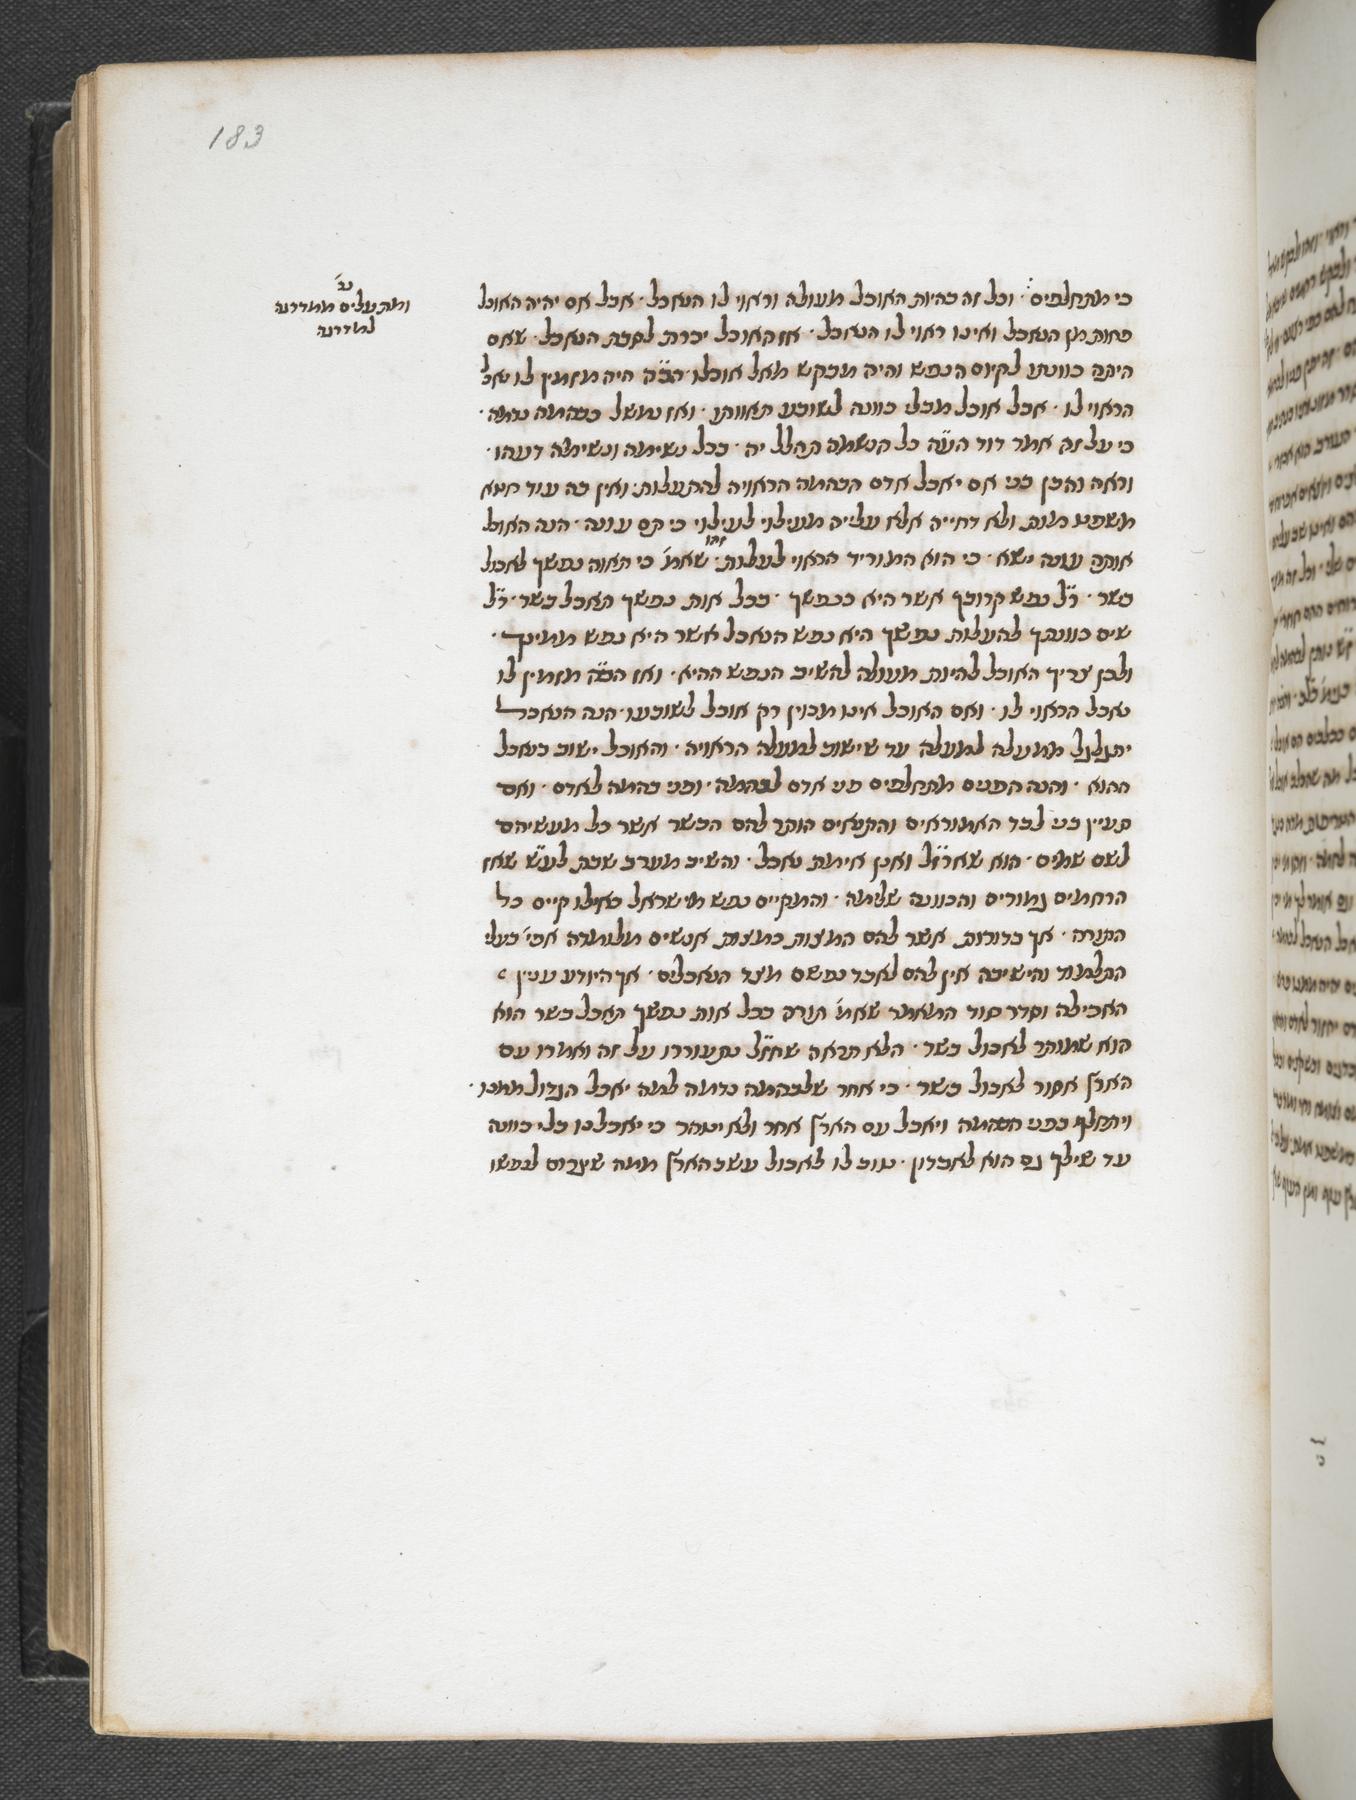 183
נ״
ומתעלים ממדרגה
למדרגה
כי מתחלפים · וכל זה בהיות האוכל מעולה וראוי לו הנאכל · אבל אם יהיה האוכל
פחות מן הנאכל ואינו ראוי לו הנאכל · אז האוכל יכרת לסבת הנאכל · שאם
היתה כוונתו לקיום הנפש והיה מבקש מאל אוכלו הב״ה היה מזמין לו נאכל
הראוי לו · אבל אוכל מבלי כוונה לשובע תאוותו · ואז נמשל כבהמה נדמה ·
כי על זה אמר דוד הע״ה כל הנשמה תהלל יה · בכל נשימה ונשימה דעהו ·
וראה והבן כי אם יאכל אדם הבהמה הראויה להתעלות · ואין בה עוד חטא
משפט מות ולא דחייה אלא עלייה מעילוי לעילוי כי תם עונה · הנה האוכל
אותה עונה ישא · כי הוא המוריד הראוי לעלות · זהו שאמ׳ כי תאוה נפשך לאכול
בשר · ר״ל נפש קרובך אשר היא כנפשך · בכל אות נפשך תאכל בשר · ר״ל
שים כוונתך להעלות נפשך היא נפש הנאכל אשר היא נפש ממינך ·
ולכן צריך האוכל להיות מעולה להשיב הנפש ההיא · ואז הב״ה מזמין לו
נאכל הראוי לו · ואם האוכל אינו מכוין רק אוכל לשובעו · הנה הנאכל
יתגלגל ממעלה למעלה עד שישוב למעלה הראויה · והאוכל ישוב כנאכל
ההוא · והנה הפנים מתחלפים פני אדם לבהמה · ופני בהמה לאדם · ואם
תעיין כי לבד האמוראים והתנאים הותר להם הבשר אשר כל מעשיהם
לשם שמים · הוא שארז״ל ואכן אימת נאכל · והשיב מערב שבת לע״ש שאז
הרחמים גמורים והכוונה שלמה · והמקיים נפש מישראל כאילו קיים כל
התורה · אך בדורות אשר להם המצות כמצות אנשים מלומדה אפי׳ בעלי
התלמוד והישיבה אין להם לאבד נפשם מצד הנאכלים · אך היודע ענין
האכילה וסדר סוד המאמר שאמ׳ תורה בכל אות נפשך תאכל בשר הוא
הוא שמותר לאכול בשר · הלא תראה שחז״ל נתעוררו על זה ואמרו עם
הארץ אסור לאכול בשר · כי אחר שלבהמה נדמה למה יאכל הגדול ממנו ·
ויתחלף כפני הבהמה ויאכל עם הארץ אחר ולא יטהר כי יאכלנו בלי כוונה
עד שילך גם הוא לאבדון · טוב לו לאכול עשב הארץ ממה שיגרום לנפשו